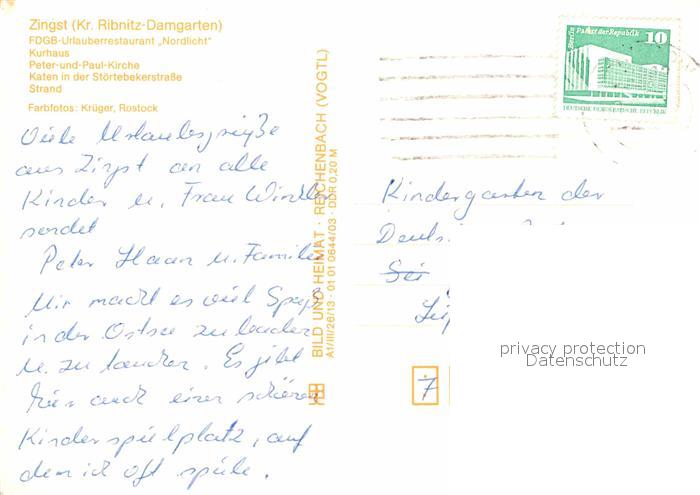 Zingst (Kr. Ribnitz-Damgarten)
FDGB-Urlauberrestaurant „Nordlicht"
Kurhaus
Peter-und-Paul-Kirche
Katen in der Störtebekerstraße
Strand
Farbfotos: Krüger, Rostock
Viele Urlaubsgrüße
aus Zingst an alle
Kinder u. Frau
sendet
Peter Haan u. Familie
Mir macht es viel Spaß
in der Ostsee zu baden
u. zu tauchen. Es gibt
hier auch einen schönen
Kinderspielplatz, auf
dem ich oft spiele.
BILD UND HEIMAT · REICHENBACH (VOGTL)
A1/III/26/13 · 01 01 0644/03 · DDR 0,20 M
Berlin Palast der Republik
10
DEUTSCHE DEMOKRATISCHE REPUBLIK
Kindergarten der
7
privacy protection
Datenschutz